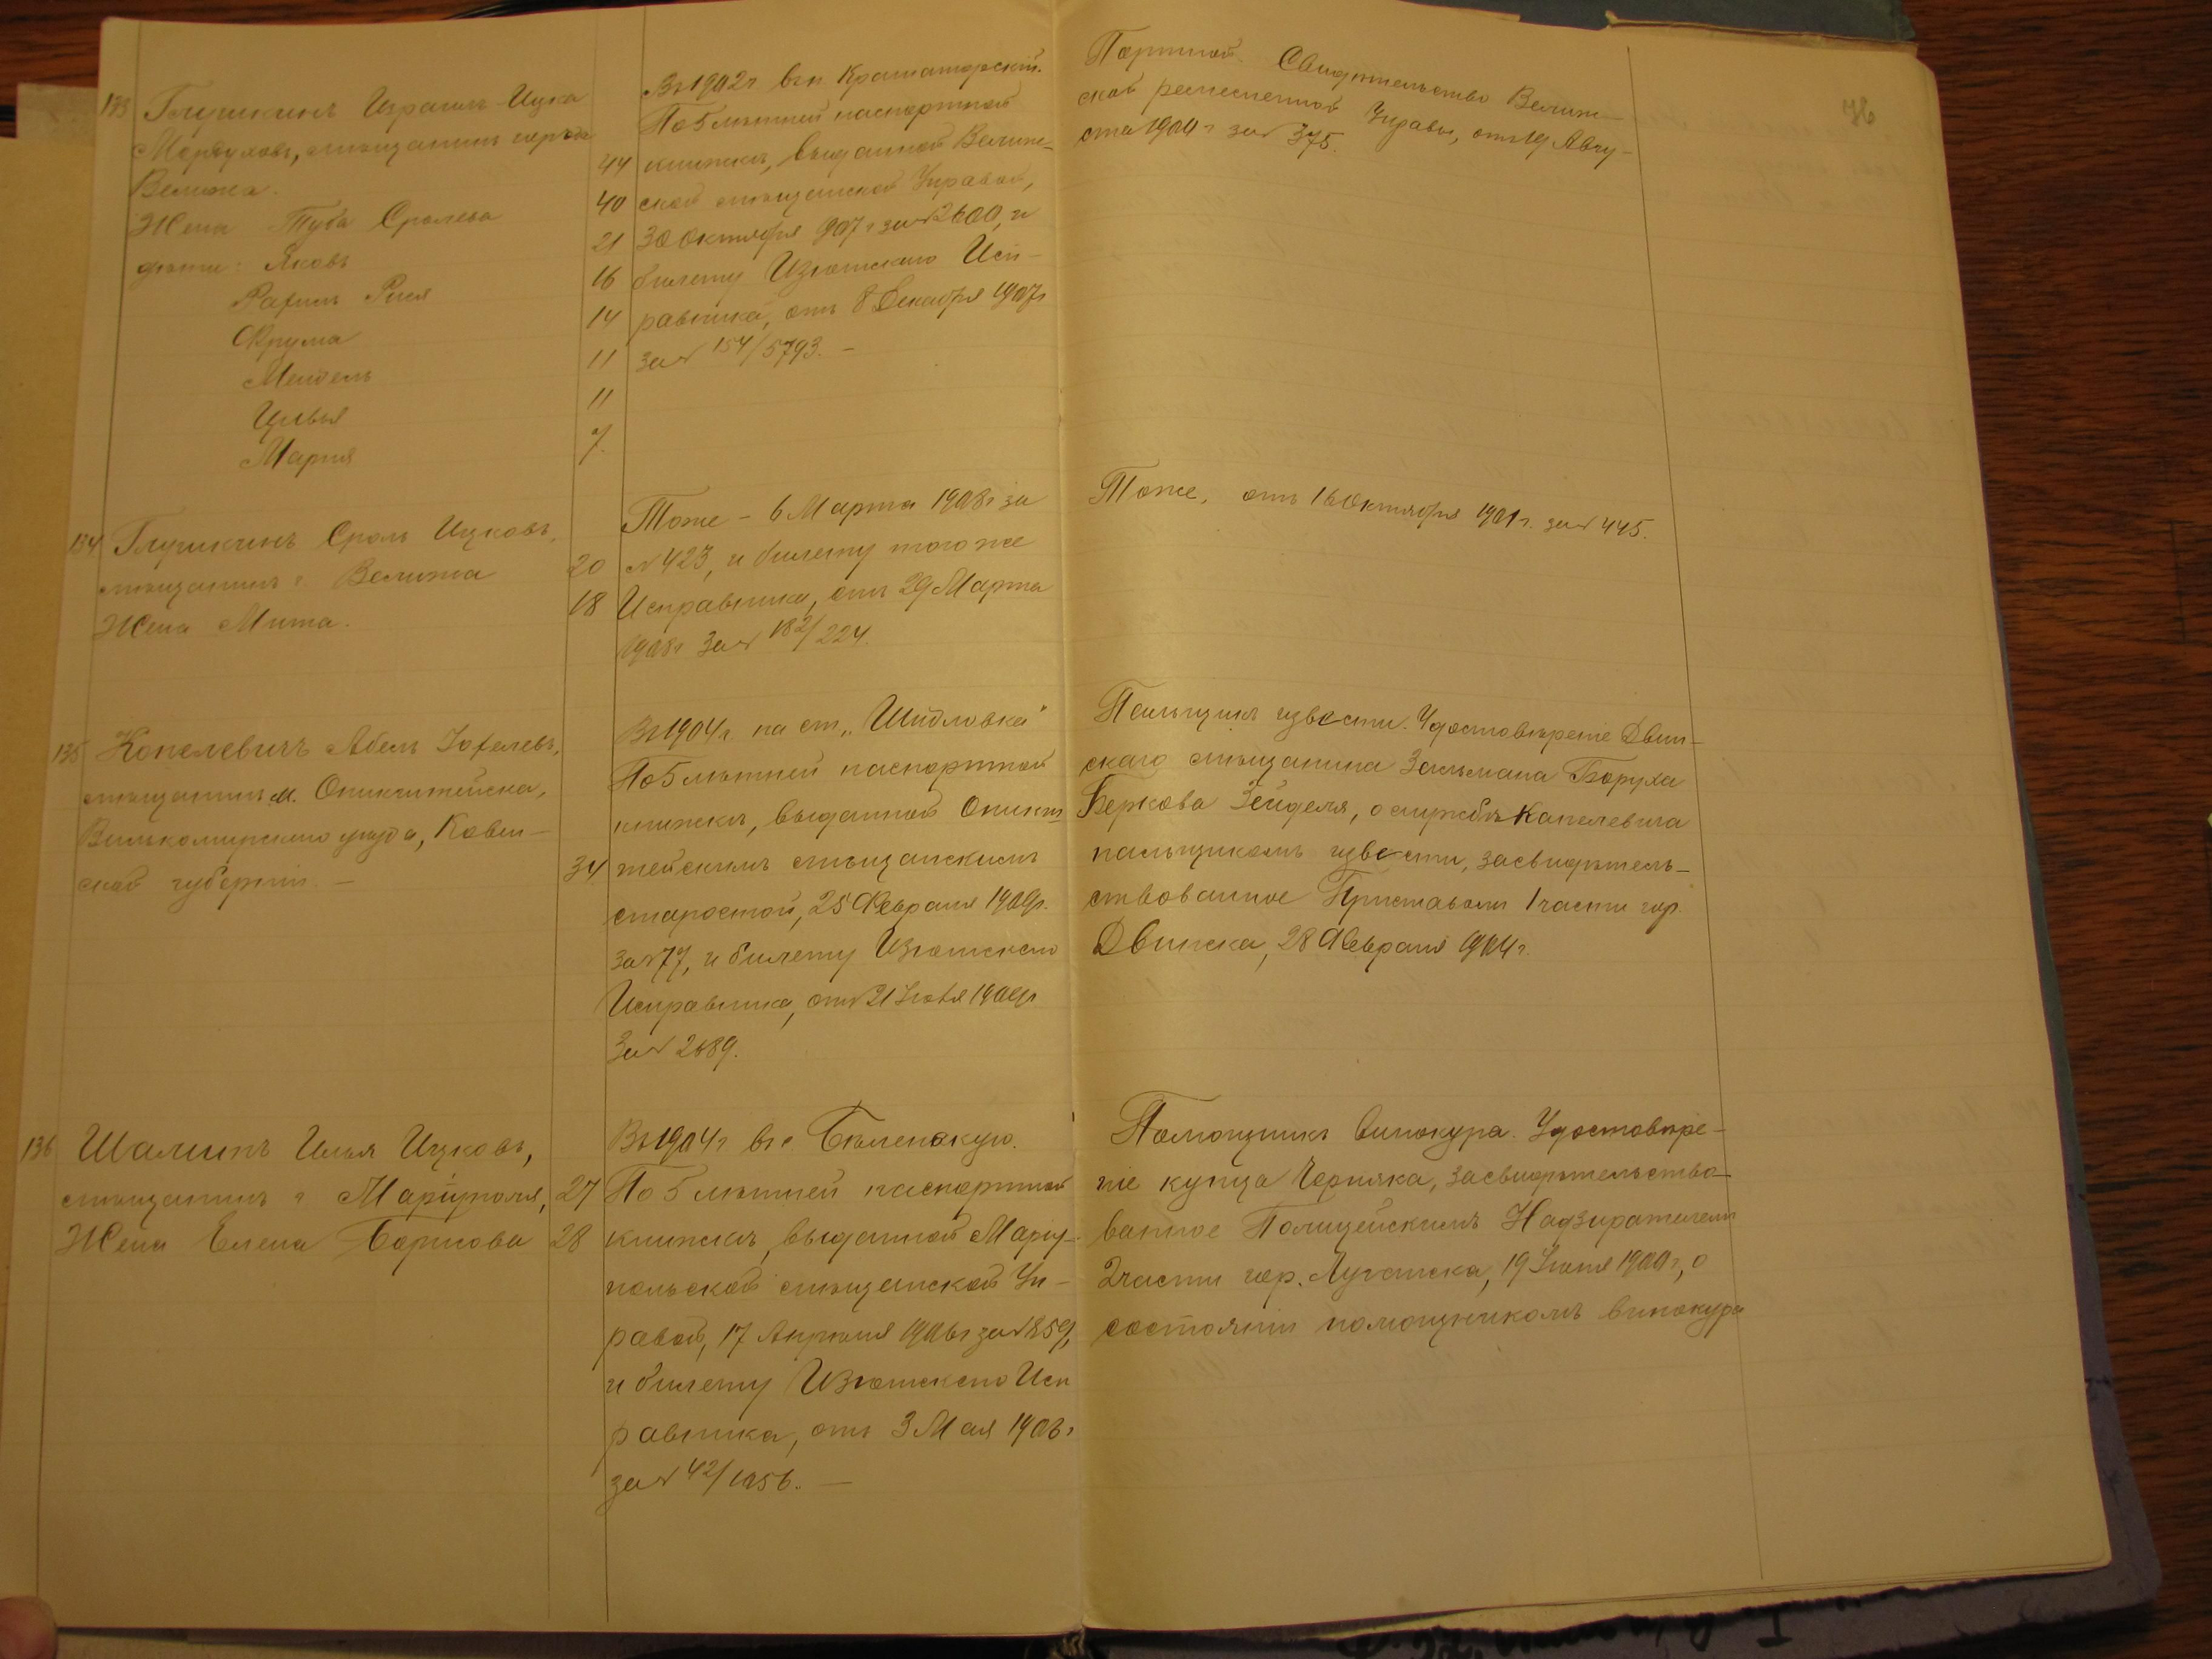 76
133 Глушкинъ Израиль-Ицка
Мордуховъ, мѣщанинъ города
Велижа. 44
Жена Туба Сролева 40
дѣти: Яковъ 21
Рахиль Рися 16
Фрума 14
Мендель 11
Цивья 11
Мария 7.
Въ 1902 г въ п Краматорскій.
По 5 лѣтней паспортной
книжкѣ, выданной Велиж-
ской мѣщанской Управой,
30 Октября 907 г за № 2600, и
билету Изюмскаго Исп-
равника, отъ 8 Декабря 1907 г
за № 154/5793. —
Портной. Свидѣтельство Велиж-
ской ремесленной Управы, отъ 19 Авгу-
ста 1900 г за № 375.
134 Глушкинъ Сроль Ицковъ,
мѣщанинъ г. Велижа 20
Жена Мита. 18
Тоже – 6 Марта 1908 г за
№ 423, и билету того же
Исправника, отъ 29 Марта
1908 г за № 182/224.
Тоже, отъ 16 Октября 1901 г. за № 445.
135 Копелевичъ Абель Іохелевъ,
мѣщанинъ м. Оникштейска,
Вилькомирскаго уѣзда, Ковен-
ской губерніи. — 34
Въ 1904 г на ст. „Шидловка"
По 5 лѣтней паспортной
книжкѣ, выданной Оникш
тейскимъ мѣщанскимъ
старостой, 25 Февраля 1909 г.
за № 77, и билету Изюмскаго
Исправника, отъ 21 Іюля 1909 г
за № 2689.
Пальщикъ извести. Удостовѣреніе Двин-
скаго мѣщанина Зальмана Боруха
Беркова Зейделя, о службѣ Капелевича
пальщикомъ извести, засвидѣтель-
ствованное Приставомъ 1 части гор.
Двинска, 28 Февраля 1904 г.
136 Шалитъ Илья Ицковъ,
мѣщанинъ г Маріуполя, 27
Жена Елена Борисова 28
Въ 1904 г въ с Бѣленькую.
По 5 лѣтней паспортной
книжкѣ, выданной Маріу-
польской мѣщанской Уп-
равой, 17 Апрѣля 1906 г за № 859,
и билету Изюмскаго Исп
равника, отъ 3 Мая 1908 г
за № 42/1056. —
Помощникъ винокура. Удостовѣре-
ніе купца Черняка, засвидѣтельство-
ванное Полицейскимъ Надзирателемъ
2 части гор. Луганска, 19 Іюня 1900 г, о
состояніи помощникомъ винокура